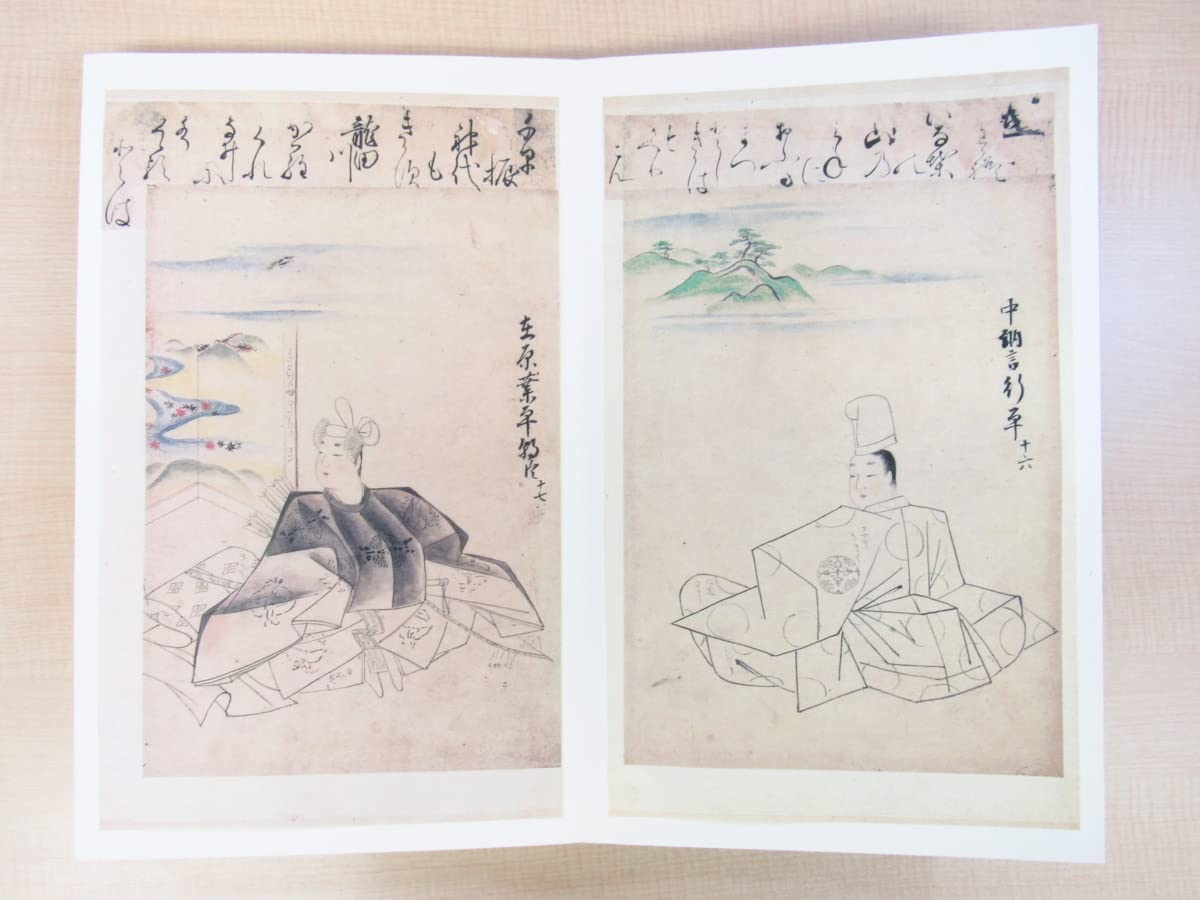 立
わかれ
いな葉の
山乃
みねに
おふる
まつ
とし
きかは
今
かへり
こん
中納言行平 十六
千早
振
神代
も
きかす
龍田
川
から
くれ
なゐに
水
くゝる
とは
在原業平朝臣 十七